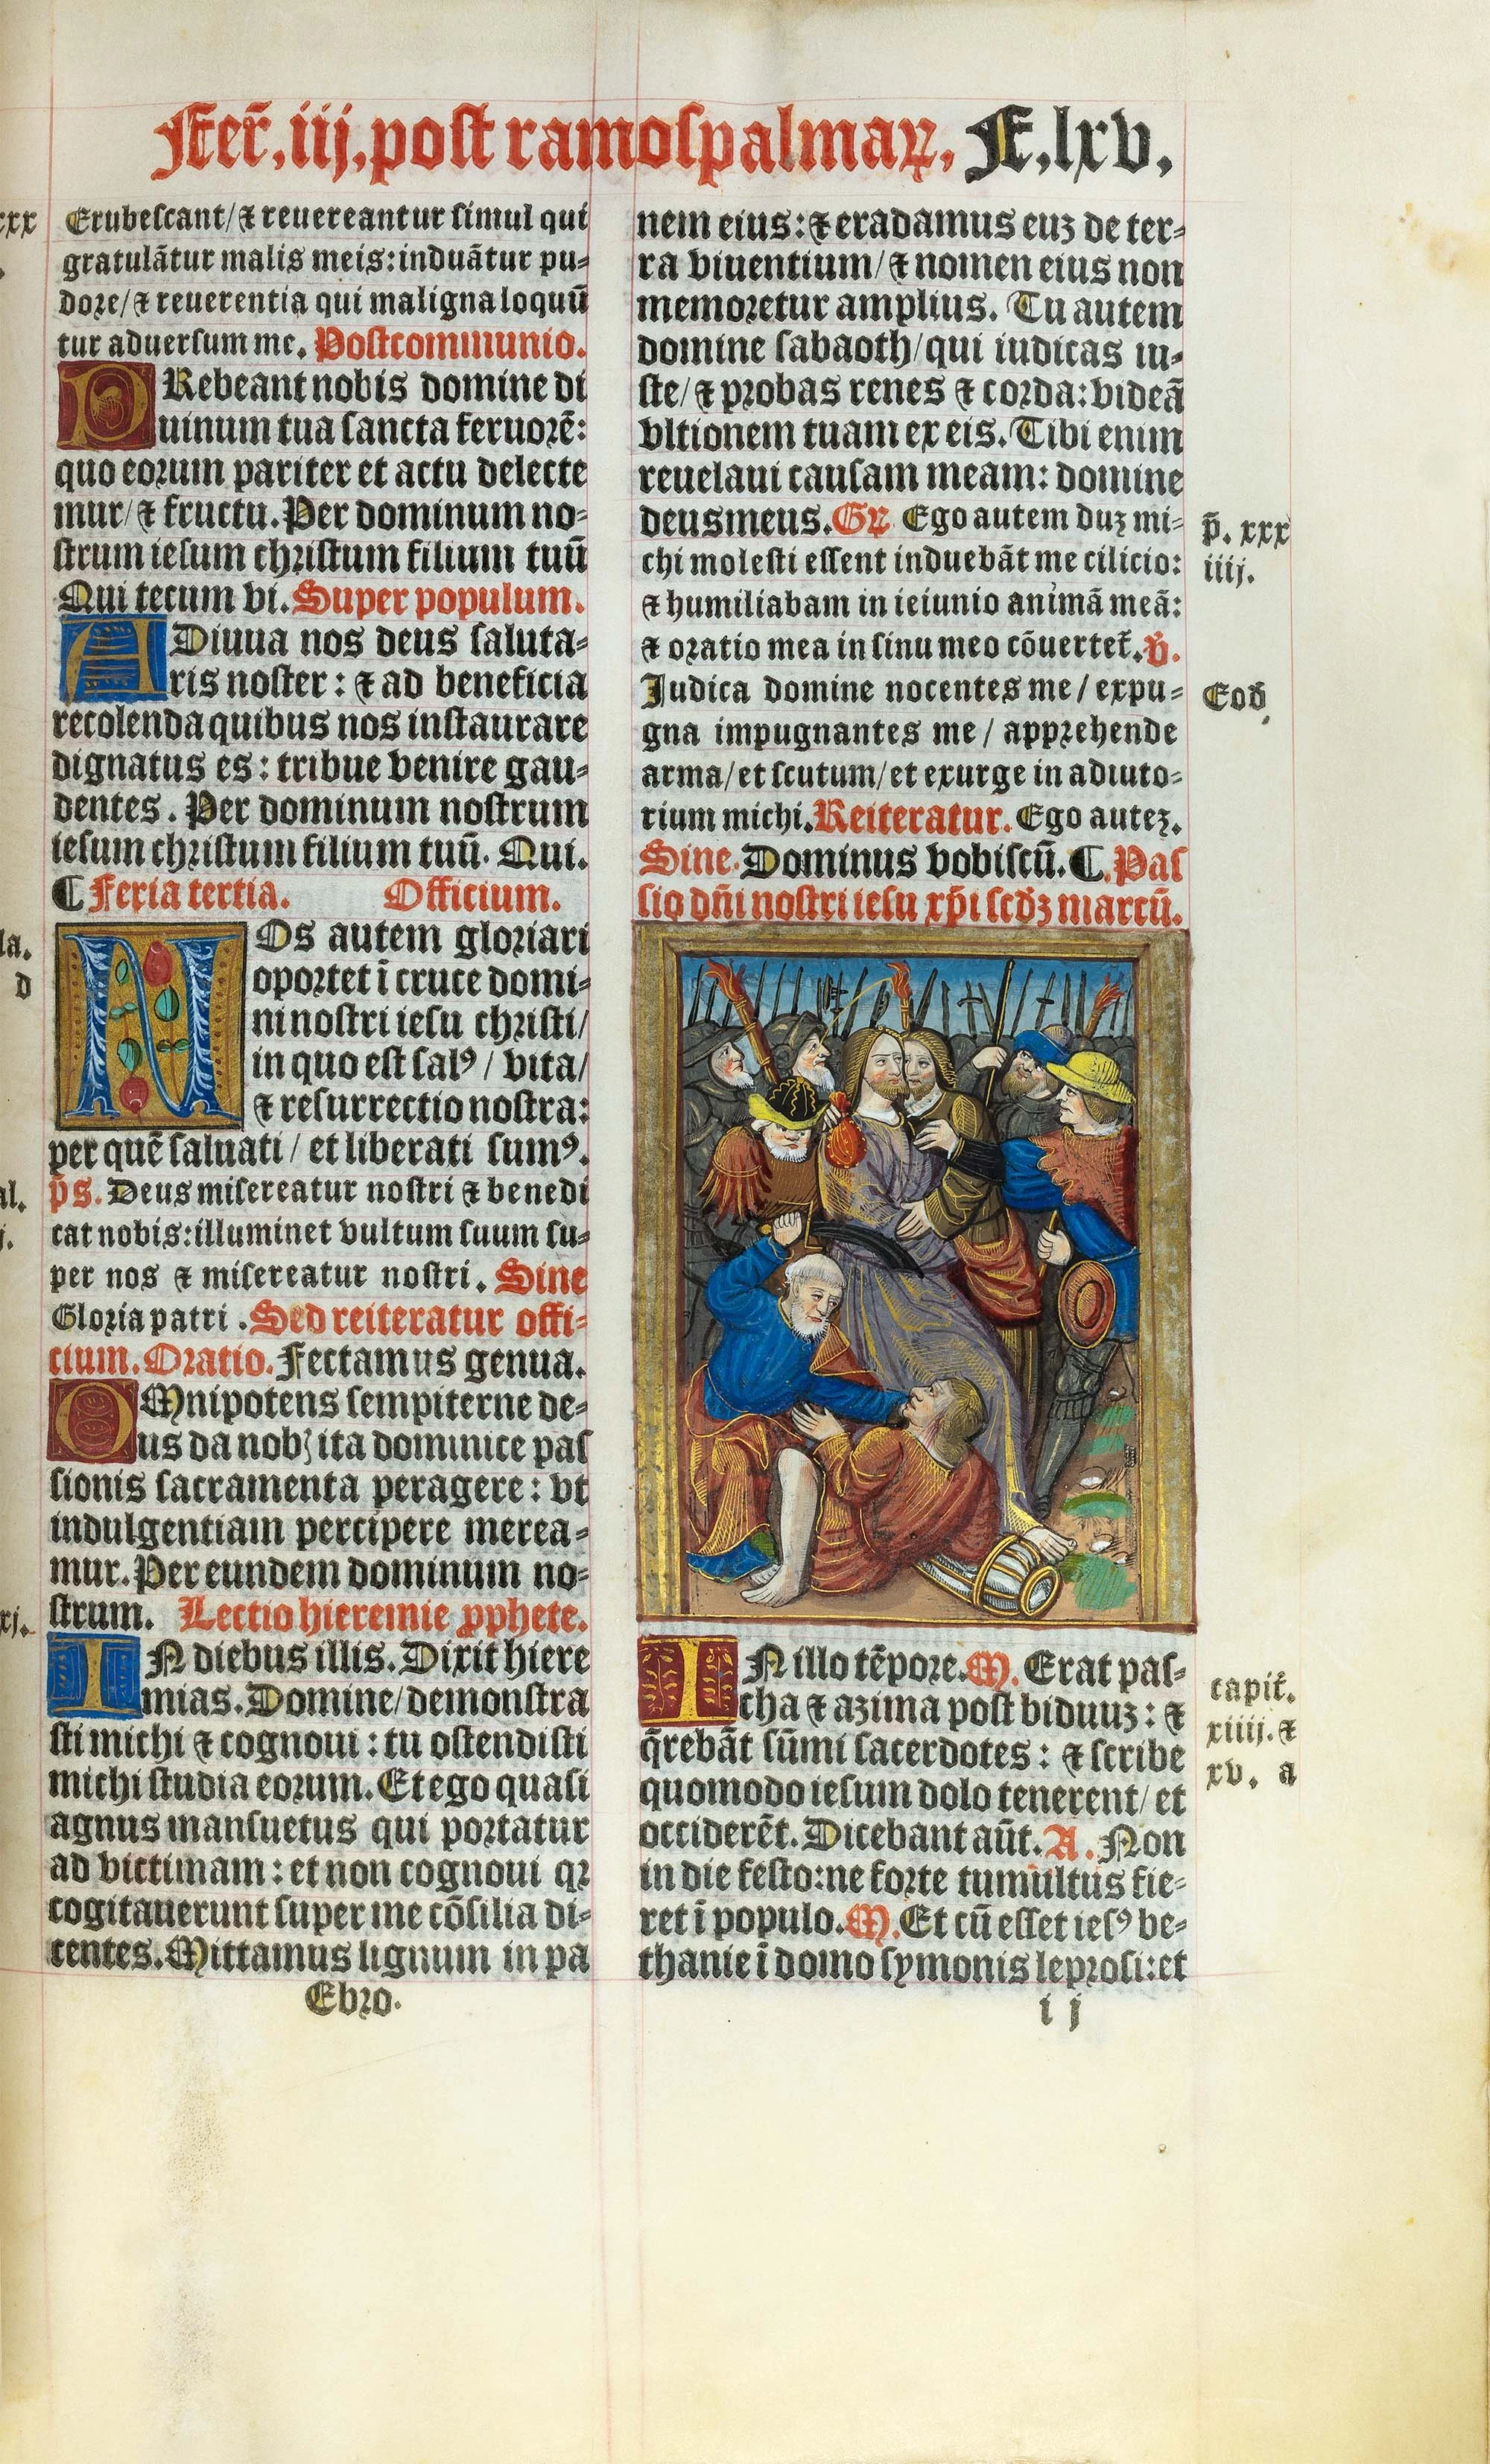 Fer̄.iij.post ramos palmaꝝ. F.lxv.
xxx
Erubescant/⁊ reuereantur simul qui
gratulātur malis meis:induātur pu⸗
dore/⁊ reuerentia qui maligna loquū
tur aduersum me. Postcommunio.
PRebeant nobis domine di
uinum tua sancta feruorē:
quo eorum pariter et actu delecte
mur/⁊ fructu.Per dominum no⸗
strum iesum christum filium tuū
Qui tecum vi. Super populum.
ADiuua nos deus saluta⸗
ris noster: ⁊ ad beneficia
recolenda quibus nos instaurare
dignatus es: tribue venire gau⸗
dentes. Per dominum nostrum
iesum christum filium tuū. Qui.
¶ Feria tertia. Officium.
NOs autem gloriari
oportet ī cruce domi⸗
ni nostri iesu christi/
in quo est salꝰ/ vita/
⁊ resurrectio nostra:
per quē saluati/ et liberati sumꝰ.
p̄s. Deus misereatur nostri ⁊ benedi
cat nobis:illuminet vultum suum su⸗
per nos ⁊ misereatur nostri. Sine
Gloria patri. Sed reiteratur offi⸗
cium. Oratio. Flectamus genua.
OMnipotens sempiterne de⸗
us da nobꝫ ita dominice pas
sionis sacramenta peragere: vt
indulgentiam percipere merea⸗
mur. Per eundem dominum no⸗
strum. Lectio hieremie ꝓphete.
IN diebus illis. Dixit hiere
mias. Domine/demonstra
sti michi ⁊ cognoui: tu ostendisti
michi studia eorum. Et ego quasi
agnus mansuetus qui portatur
ad victimam: et non cognoui qꝛ
cogitauerunt super me cōsilia di⸗
centes. Mittamus lignum in pa
Ebro.
la.
d
al.
j.
xj.
nem eius: ⁊ eradamus euꝫ de ter⸗
ra viuentium/⁊ nomen eius non
memoretur amplius. Tu autem
domine sabaoth/qui iudicas iu⸗
ste/⁊ probas renes ⁊ corda: videā
vltionem tuam ex eis. Tibi enim
reuelaui causam meam: domine
deus meus. Gꝝ Ego autem duꝫ mi⸗
chi molesti essent induebāt me cilicio:
⁊ humiliabam in ieiunio animā meā:
⁊ oratio mea in sinu meo cōuertet̄. ꝟ.
Iudica domine nocentes me/ expu⸗
gna impugnantes me/ apprehende
arma/et scutum/et exurge in adiuto⸗
rium michi. Reiteratur. Ego auteꝫ.
Sine. Dominus vobiscū. ¶. Pas
sio dn̄i nostri iesu xp̄i scd̄ꝫ marcū.
IN illo tēpore. M. Erat pas⸗
cha ⁊ azima post biduuꝫ: ⁊
q̄rebāt sūmi sacerdotes: ⁊ scribe
quomodo iesum dolo tenerent/ et
occiderēt. Dicebant aūt. A. Non
in die festo:ne forte tumultus fie⸗
ret ī populo. M. Et cū esset iesꝰ be⸗
thanie ī domo symonis leprosi:et
i j
p̄. xxx
iiij.
Eod̄
capit̄.
xiiij. ⁊
xv. a